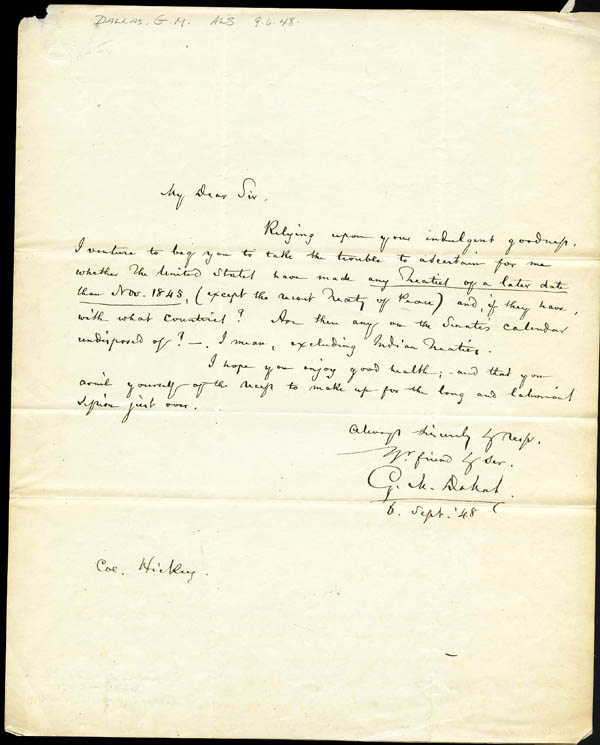 DALLAS, G.M. ALS 9.6.48.
My Dear Sir,
Relying upon your indulgent goodness,
I venture to beg you to take the trouble to ascertain for me
whether the United States have made any Treaties of a later date
than Nov. 1845, (except the recent Treaty of Peace) and, if they have,
with what countries? Are there any on the Senate's calendar
undisposed of? —. I mean, excluding Indian Treaties.
I hope you enjoy good health; - and that you
avail yourself of the recess to make up for the long and laborious
session just over.
Always sincerely & resp.
Yr. friend & ser.
G. M. Dallas.
6. Sept. '48
Col. Hickey.